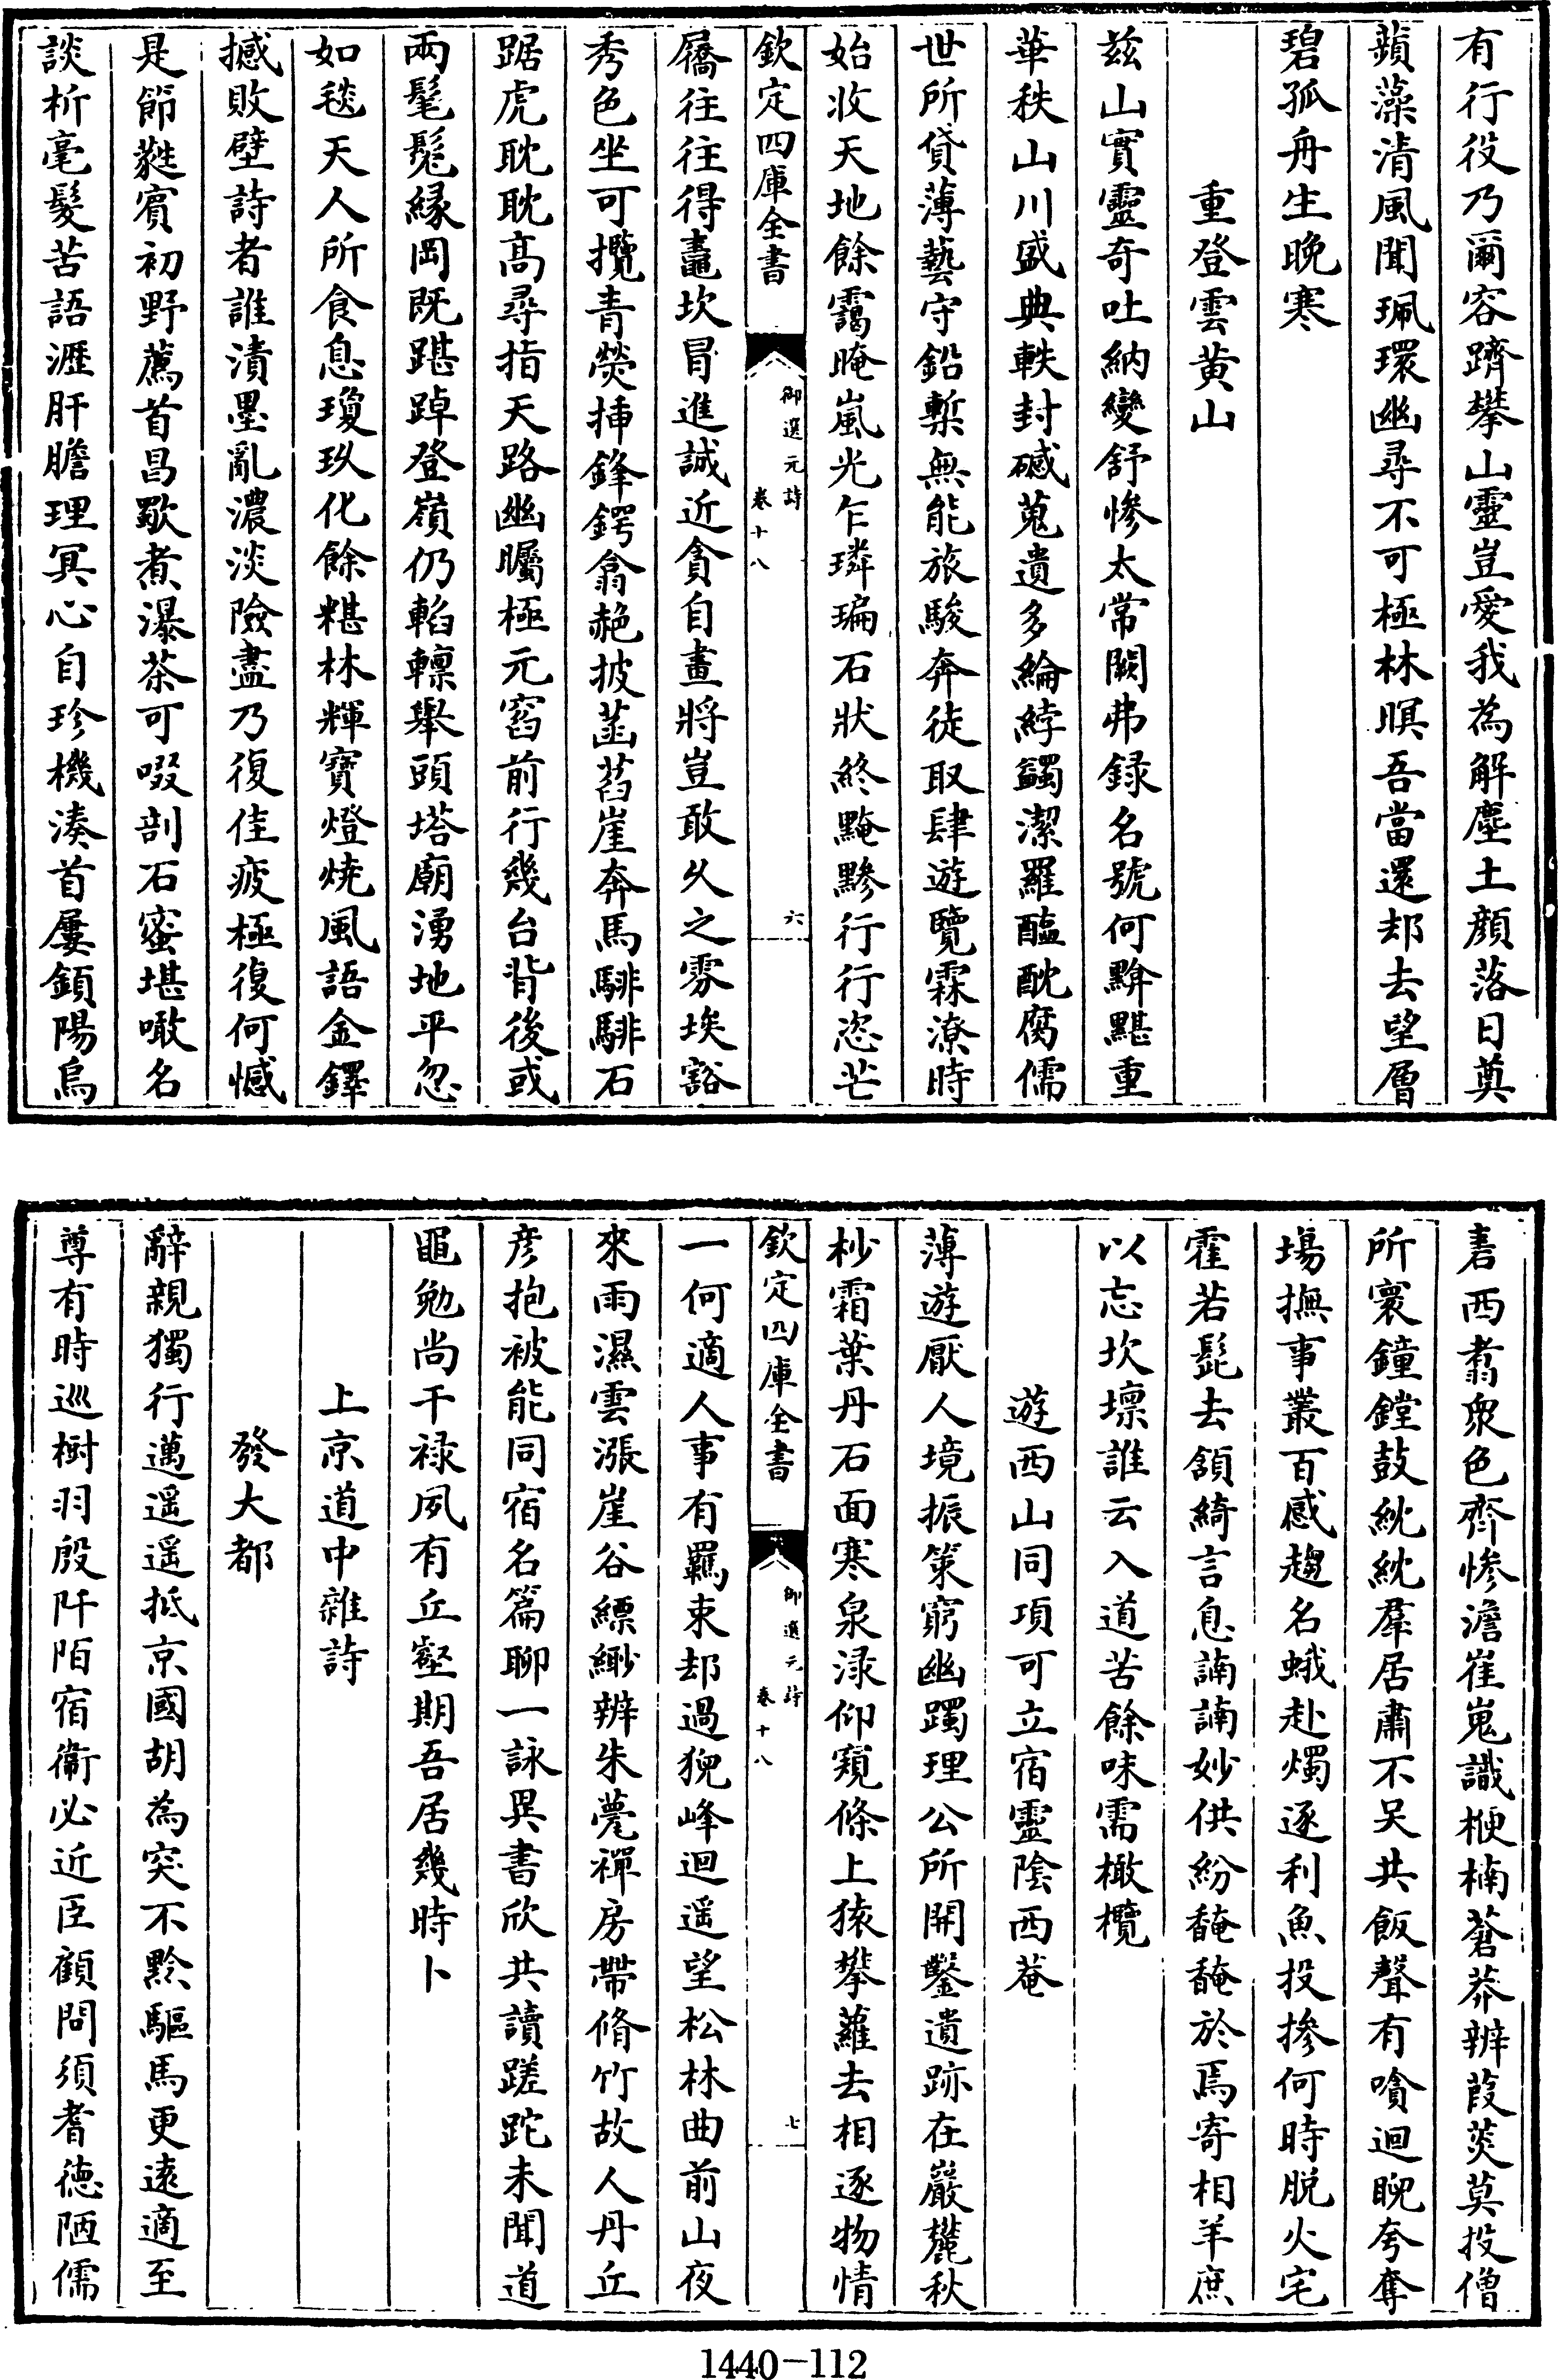 有行役乃爾容躋攀山靈豈愛我為解塵土顏落日奠
蘋藻清風聞珮環幽尋不可極林暝吾當還却去望層
碧孤舟生晚寒
重登雲黄山
兹山實靈奇吐納變舒慘太常闕弗録名號何黭黮重
華秩山川盛典軼封磩蒐遺多綸綍蠲潔羅醢酖腐儒
世所貸薄藝守鉛槧無能旅駿奔徒取肆遊覽霖潦時
始收天地餘靄晻嵐光乍璘㻞石狀終黤黲行行恣芒
屩往往得鼃坎冒進誠近貪自畫將豈敢久之雰埃豁
秀色坐可攬青熒挿鋒鍔翕赩披菡萏崖奔馬騑騑石
踞虎耽耽高尋指天路幽矚極元窞前行幾台背後或
兩髦髧縁岡既踸踔登嶺仍轁轈舉頭塔廟湧地平忽
如毯天人所食息瓊玖化餘糂林輝寶燈燒風語金鐸
撼敗壁詩者誰漬墨亂濃淡險盡乃復佳疲極復何憾
是節蕤賓初野薦首昌歜煮瀑茶可啜剖石蜜堪噉名
談析毫髮苦語瀝肝膽理冥心自珍機湊首屢顉陽烏
欽定四庫全書
御選元詩
卷十八
六
翥西翥衆色齊慘澹崔嵬識楩楠蒼莽辨葭菼莫投僧
所寰鐘鏜鼓紞紞羣居肅不吴共飯聲有噏迴睨夸奪
場撫事叢百感趨名蛾赴燭逐利魚投槮何時脱火宅
霍若髭去頷綺言息諵諵妙供紛馣馣於焉寄相羊庶
以忘坎壈誰云入道苦餘味需橄欖
遊西山同項可立宿靈隂西菴
薄遊厭人境振策窮幽躅理公所開鑿遺跡在巖麓秋
杪霜葉丹石面寒泉渌仰窺條上猿攀蘿去相逐物情
一何適人事有羈束却過猊峰迴遥望松林曲前山夜
來雨濕雲漲崖谷縹緲辨朱甍禪房帶脩竹故人丹丘
彦抱被能同宿名篇聊一詠異書欣共讀蹉跎未聞道
黽勉尚干禄夙有丘壑期吾居幾時卜
上京道中雜詩
發大都
辭親獨行邁遥遥抵京國胡為突不黔驅馬更遠適至
尊有時廵樹羽殷阡陌宿衛必近臣顧問須耆徳陋儒
欽定四庫全書
御選元詩
卷十八
七
1440-112